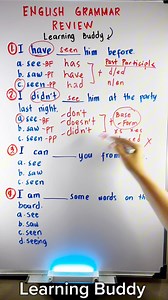 ENGLISH GRAMMAR
REVIEW
Learning Buddy
① I have seen him before.
a. see-BF has Past Participle
b. saw-PT have + d/ed
c. seen-PP had n/en
② I didn't see him at the party
last night.
a. see-BF don't
b. saw-PT doesn't + Base
c. seen-PP didn't Form
③ I can ___ you from
a. see
b. saw
c. seen
④ I am ___ some words on the
board.
a. see
b. saw
c. seen
d. seeing
Learning Buddy